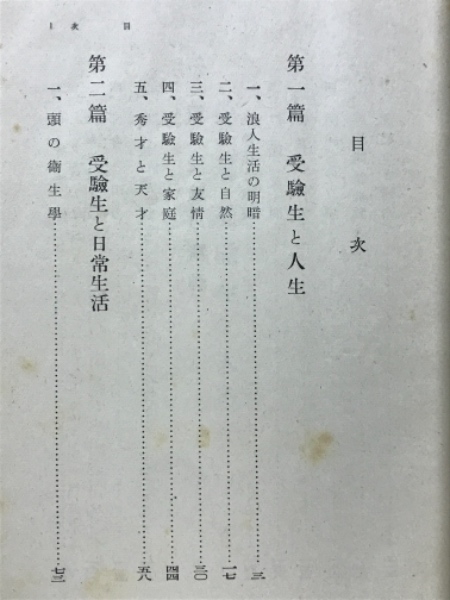 目次 1
目次
第一篇 受驗生と人生
一、浪人生活の明暗……三
二、受驗生と自然……一七
三、受驗生と友情……三〇
四、受驗生と家庭……四四
五、秀才と天才……五八
第二篇 受驗生と日常生活
一、頭の衞生學……七三